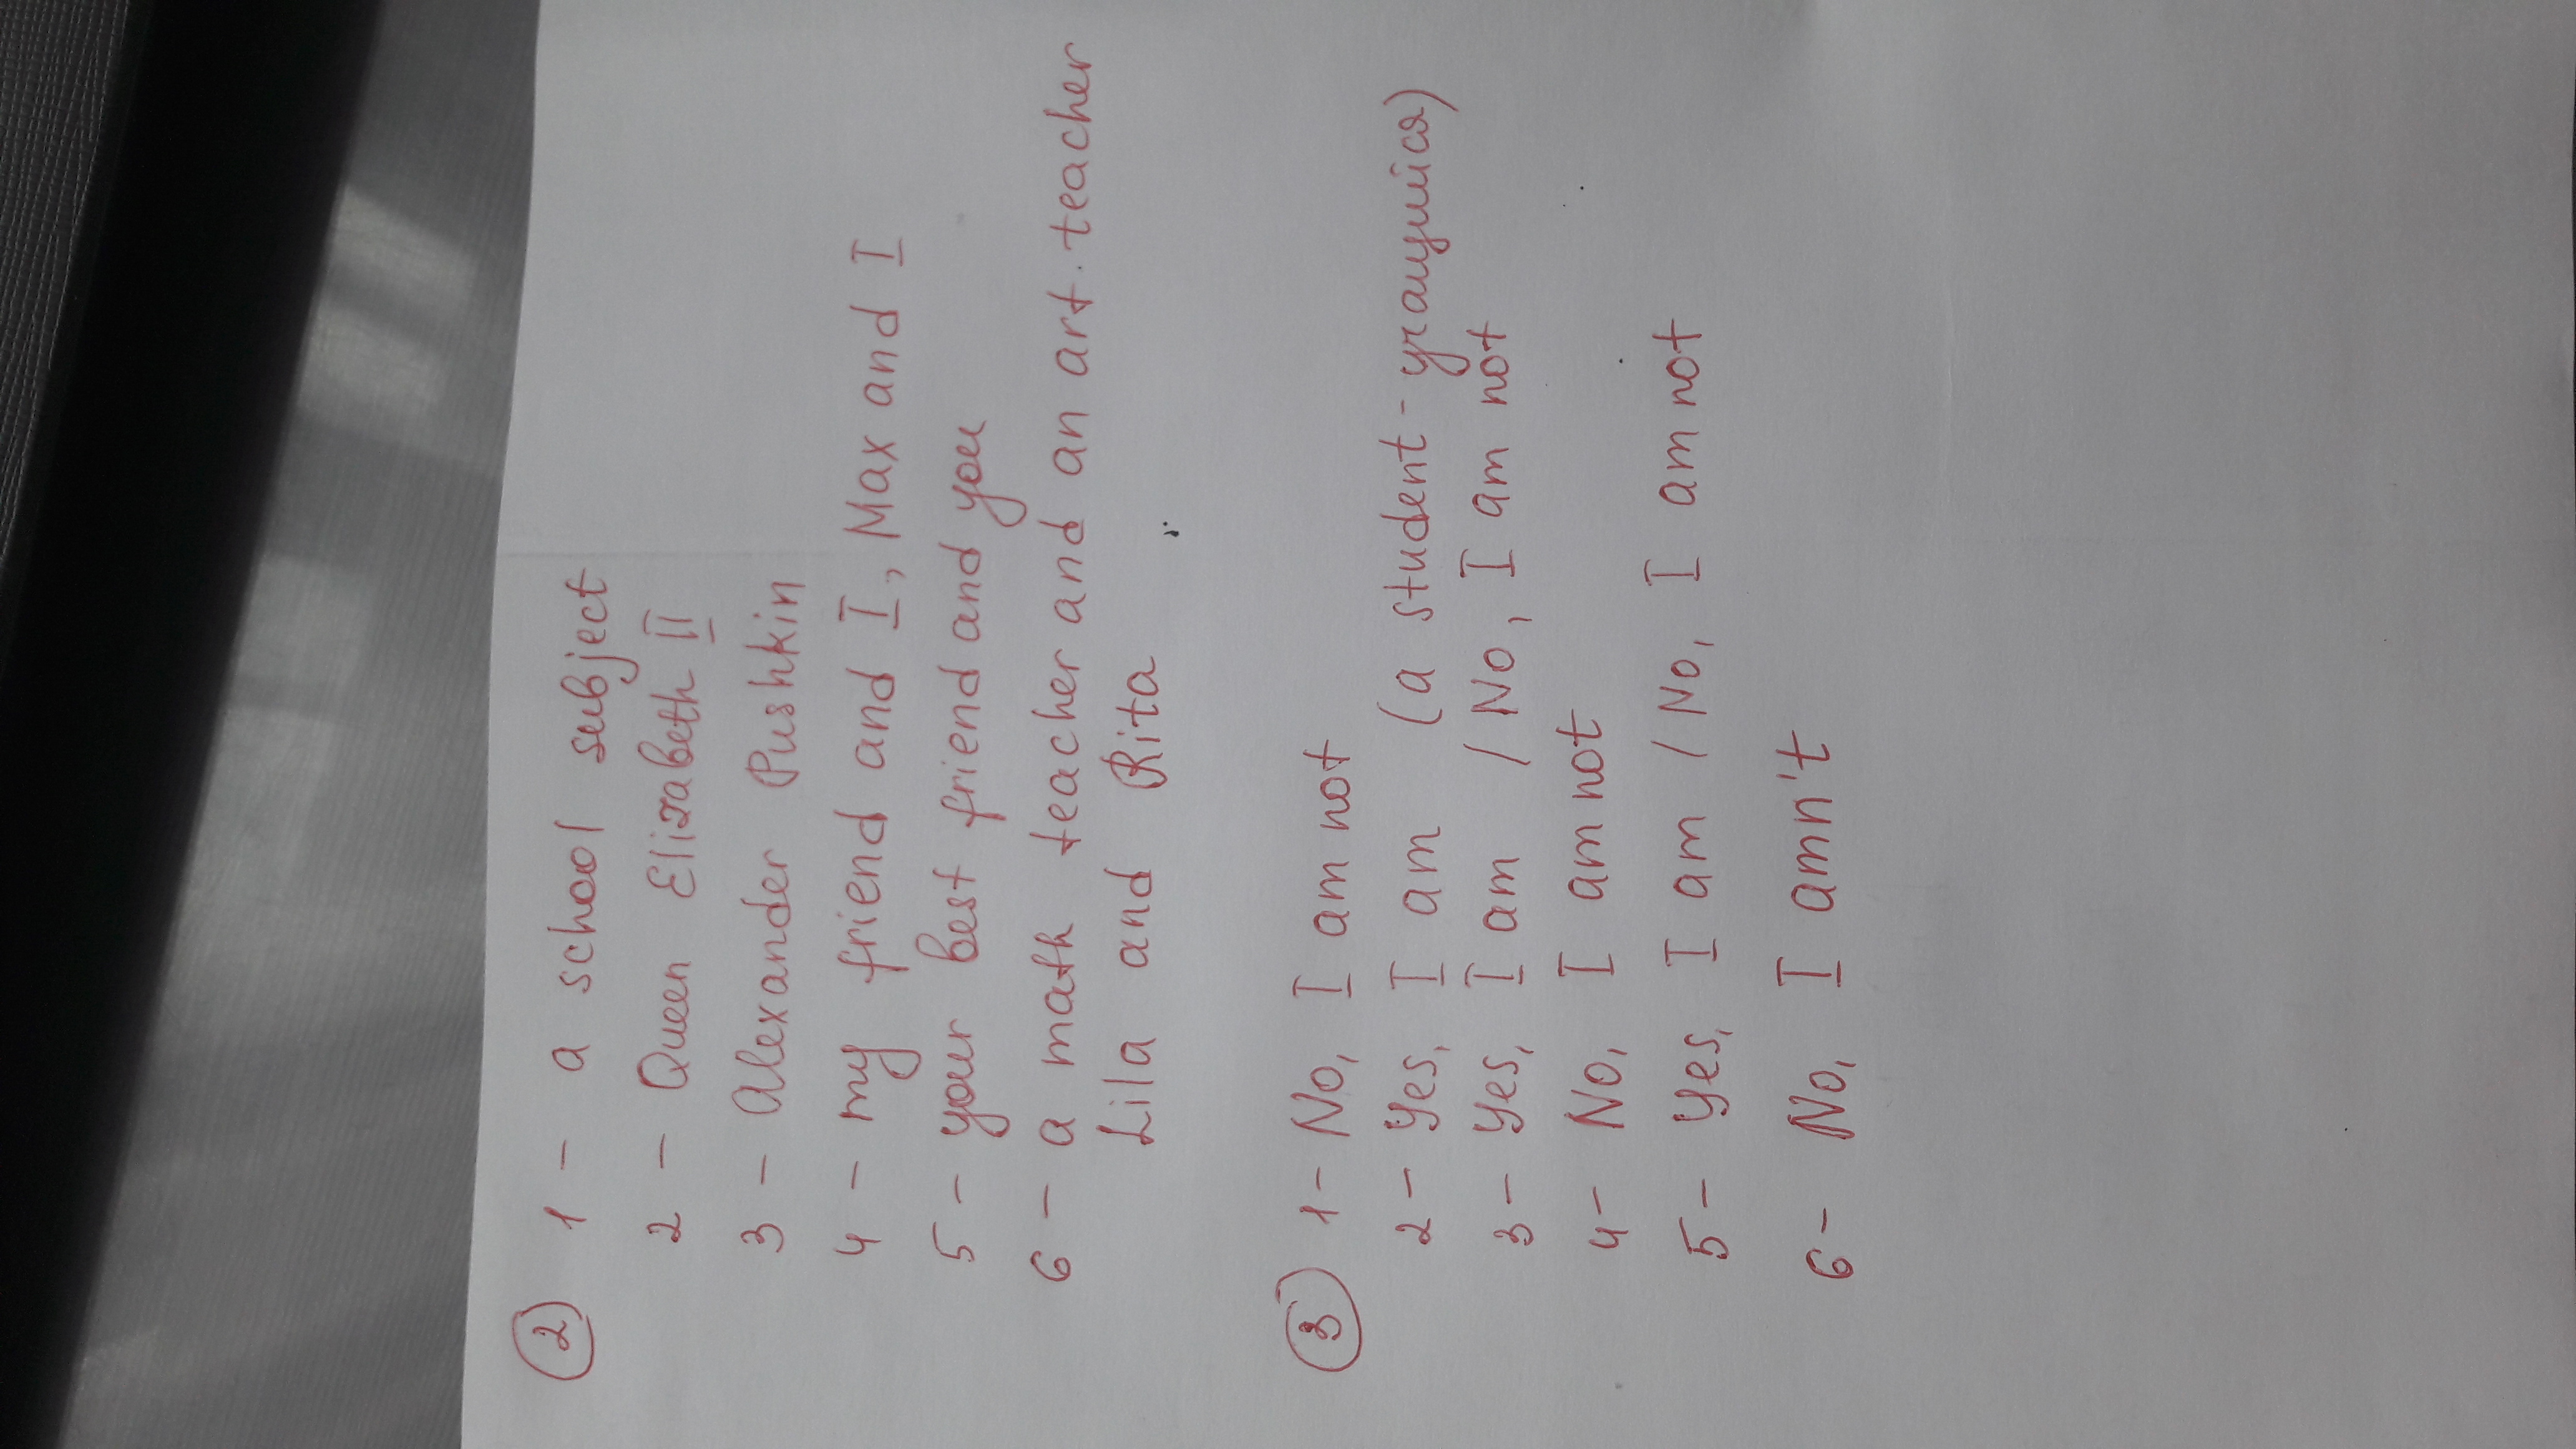 2 1 - a school subject
2 - Queen Elizabeth II
3 - Alexander Pushkin
4 - my friend and I, Max and I
5 - your best friend and you
6 - a math teacher and an art teacher
Lila and Rita
3 1 - No, I am not
2 - Yes, I am (a student - учащийся)
3 - Yes, I am / No, I am not
4 - No, I am not
5 - Yes, I am / No, I am not
6 - No, I amn't